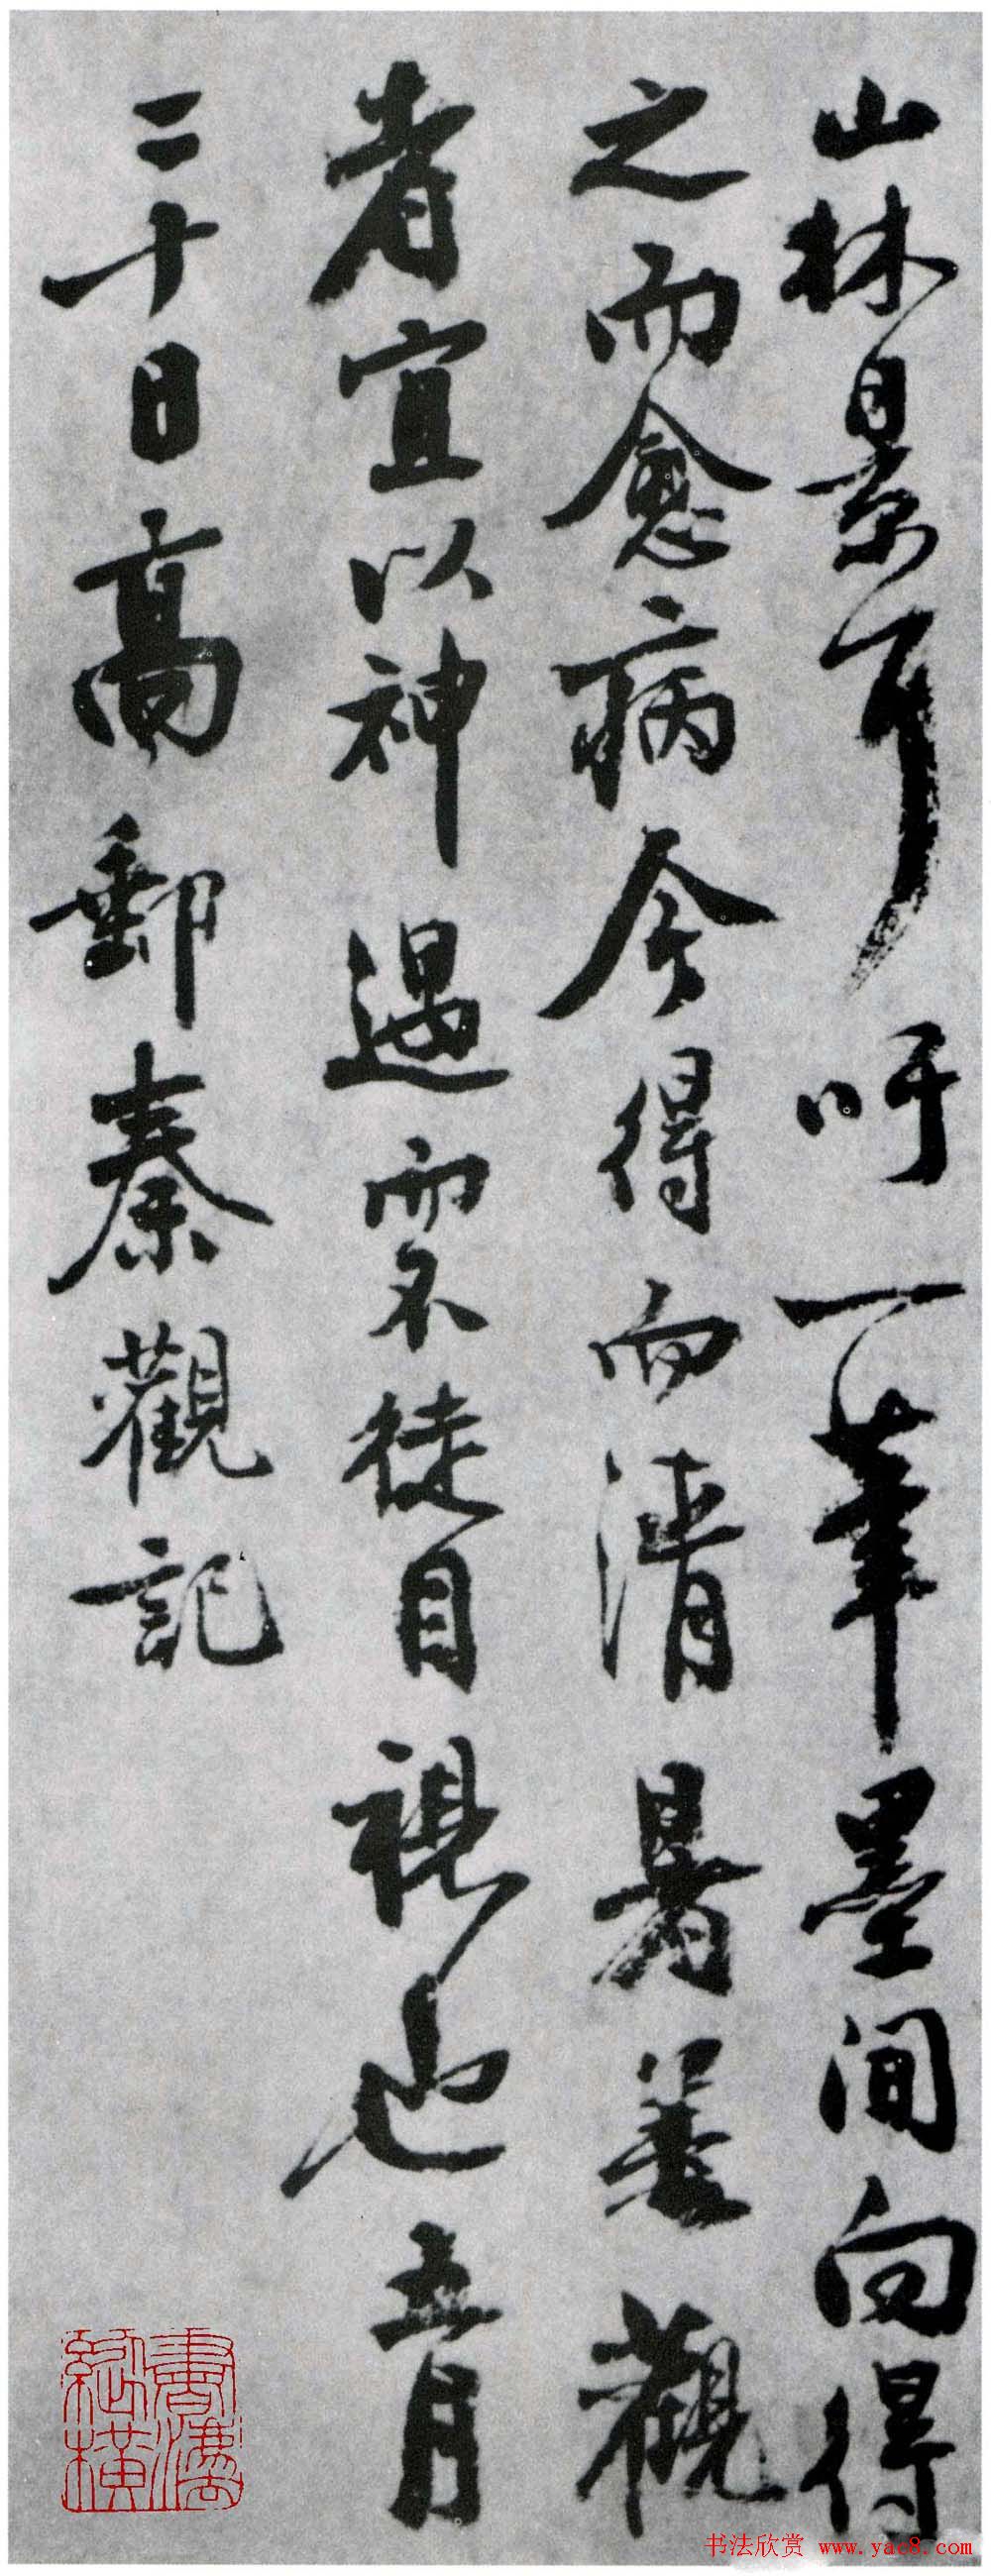 山林景耳吁一筆墨間向得
之而愈病今得而清暑善觀
者宜以神遇而不徒目視也五月
二十日高郵秦觀記
書灋縱橫
书法欣赏 www.yac8.com